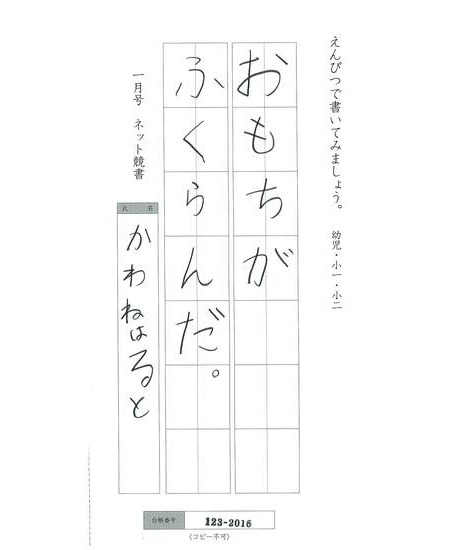 えんぴつで書いてみましょう。 幼児・小一・小二
おもちが
ふくらんだ。
一月号 ネット競書
氏 名
かわねはると
台帳番号 123-2016
(コピー不可)